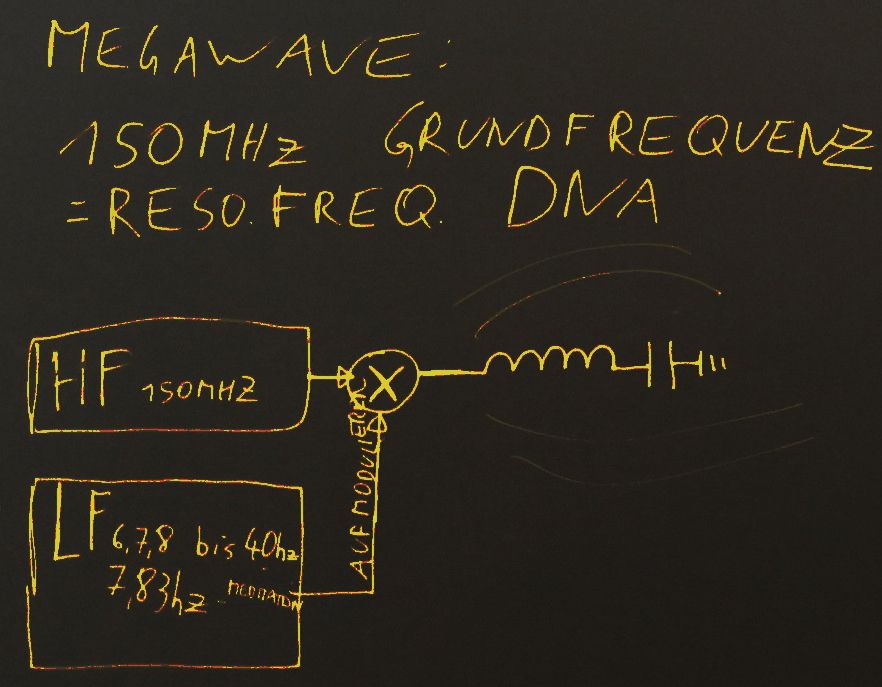 MEGAWAVE:
150MHz GRUNDFREQUENZ
=RESO.FREQ. DNA
HF 150MHZ
X
AUFMODULIEREN
LF 6,7,8 bis 40hz
7,83hz MEDITATION